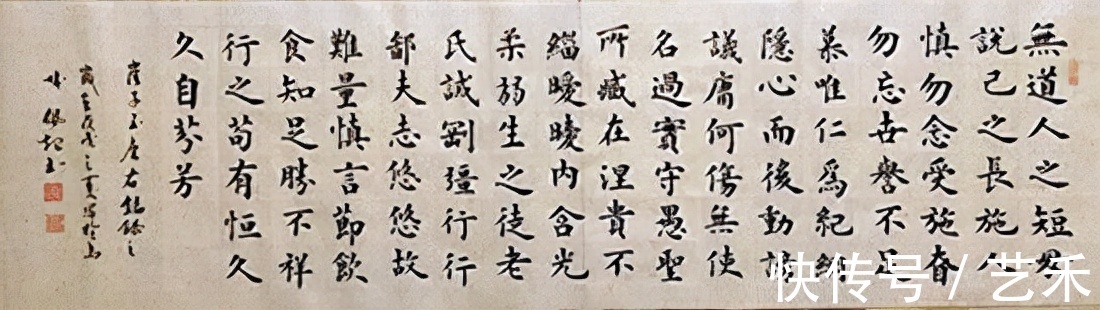 無道人之短毋
說己之長施人
慎勿念受施眘
勿忘世譽不足
慕唯仁爲紀綱
隱心而後動謗
議庸何傷無使
名過實守愚聖
所臧在涅貴不
緇曖曖內含光
柔弱生之徒老
氏誡剛彊行行
鄙夫志悠悠故
難量慎言節飲
食知足勝不祥
行之苟有恒久
久自芬芳
崔子玉座右銘錄之
快传号 / 艺禾